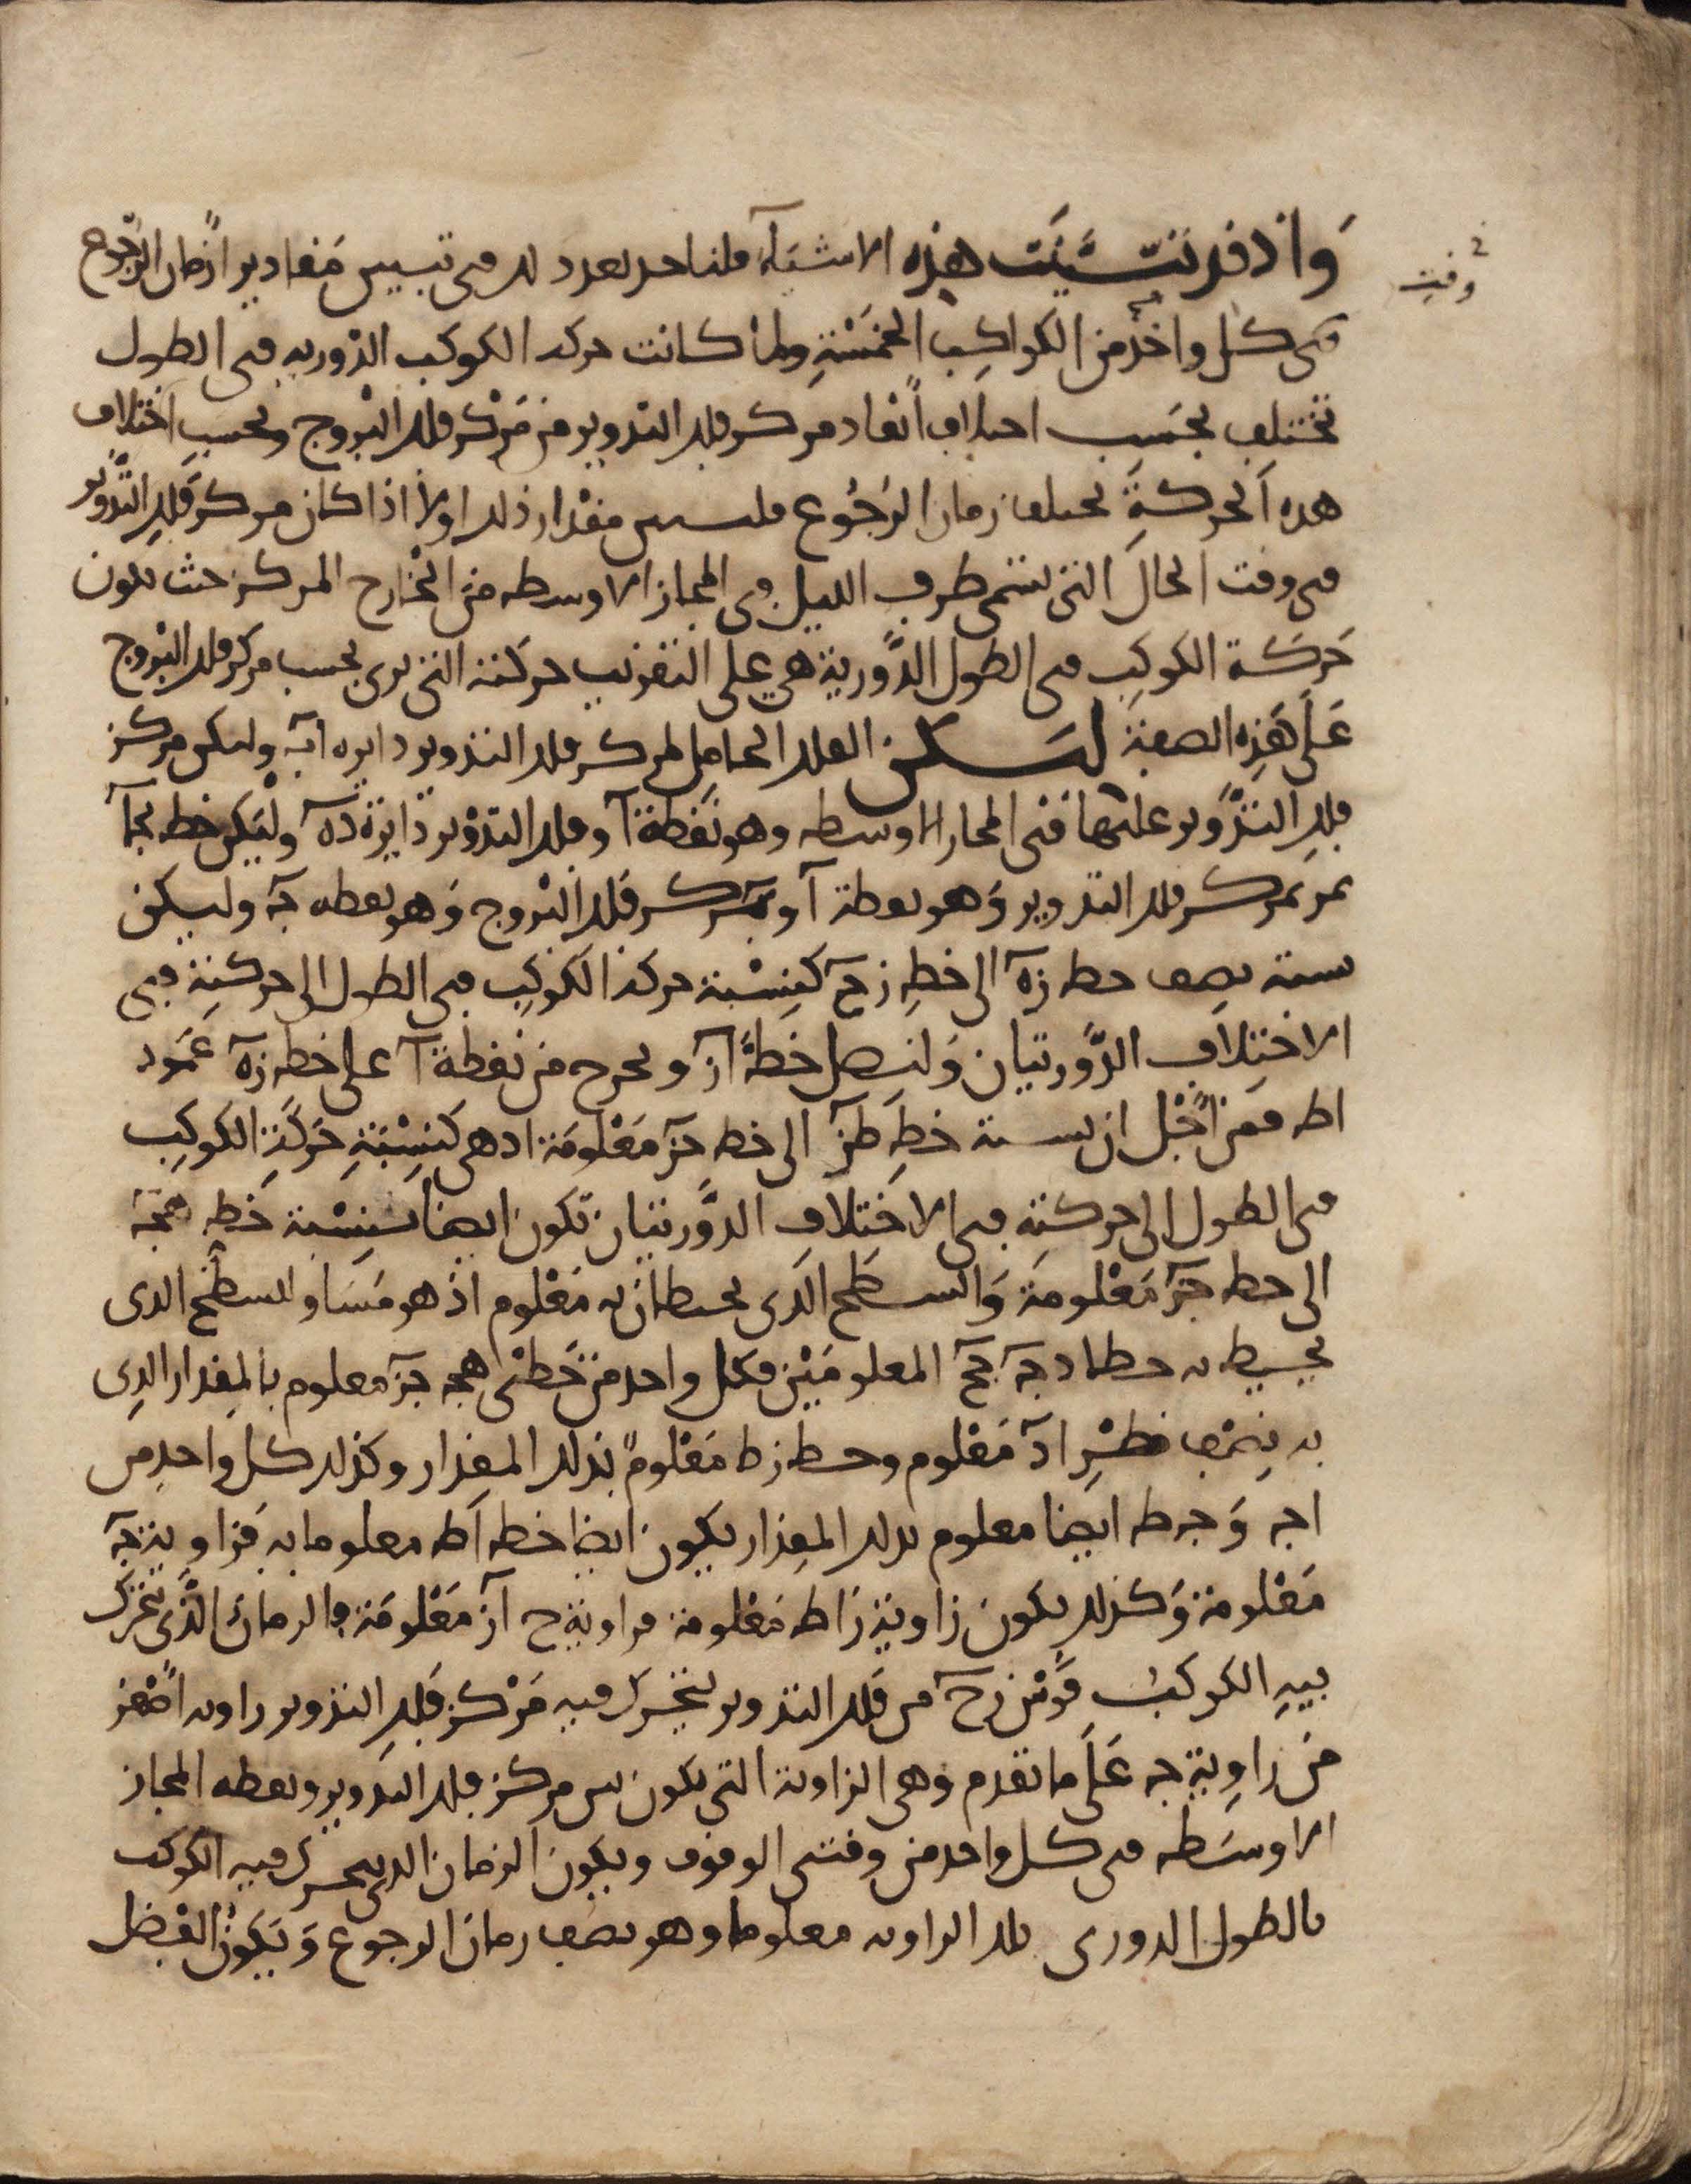 وقت
وَاذ قد تبيّنت هذه الاشيَآء فلناخذ بعد ذلك فى تبيين مَقادير ازمان الرّجوع
فى كل واحد من الكواكب الخمسَةِ ولما كانت حركة الكوكب الدورية فى الطول
تختلف بحسَب اختلاف ابعاد مركز فلك التدوير من مَرْكز فلك البُروج وبحسب اختلاف
هذه الحركةِ يختلف زمان الرُجُوع فلنبين مقدار ذلك اولا اذا كان مركز فَلكِ التّدوير
فى وقت الحال التى تسمى طرف الليل وفى المجاز الاوسط من الخارج المركز حيث تكون
حَركة الكوكب فى الطول الدَّورية هي على التقريب حركته التى ترى بحسب مركز فلك البُروج
عَلَى هَذِه الصفة ليَكن الفلك الحامل لمركز فلك التدوير دايره اب وليكن مركز
فلكِ التدوير عليها فى المجاز الاوسط وهو نقطة ا وفلك التدوير دايرة ده وليَكن خط جا
يمر بمركز فلك التدوير وَهو نقطة ا وبمركز فلك البُروج وَهو نقطه جـ وليكن
نسبة نصف خط زه الى خطِ زج كنِسْبة حركة الكوكب فى الطول الى حركتِه فى
الاختلاف الدَّوريتان وَلنصل خطَّ از ونخرج من نقطة ا على خط زه عمَود
اط فمن اَجْل ان نسبة خطِ طز الى خط جز مَعْلومَة اذ هى كنِسْبَةِ حَركَةِ الكوكِب
فى الطول الى حركته فى الاختلاف الدَّوريتان تكون ايضا نِسْبة خَط هجـ
الى خط جز مَعْلومَة وَالسطح الذى يحيطان به مَعْلوم اذ هو مسَاو للسطح الذى
يحيط به خطا دجـ جح المعلومَيْن فكل واحد من خَطىْ هجـ جز معلوم بالمقدار الذِى
به نِصْف قطرِ ا د مَعْلوم وخط زط مَعْلومٌ بذلك المقدار وكذلك كل واحد من
اجـ وَجـط ايضا معلوم بذلك المقدار يكون ايضا خط اط معلوما به فزاوية جـ
مَعْلومة وَكذلك يكون زاوية زاط مَعْلومة فزاوية ح از مَعْلومَة والزمان الذَّى يتحرك
فيهِ الكوكب قَوْس زح من فَلك التدوير يتحرك فيه مَرْكز فَلكِ التدوير زاويه اصْغر
من زاوية جـ عَلَى ما تقدم وَهى الزاوية التى تكون بين مركز فلك التدوير ونقطه المجاز
الاوسَط فى كل واحد من وقتى الوقوف ويكون الزمان الذى يتحرك فيه الكوكب
بالطول الدورى تلك الزاويه معلوما وهو نصف زمان الرجوع وَيَكُون الفضل